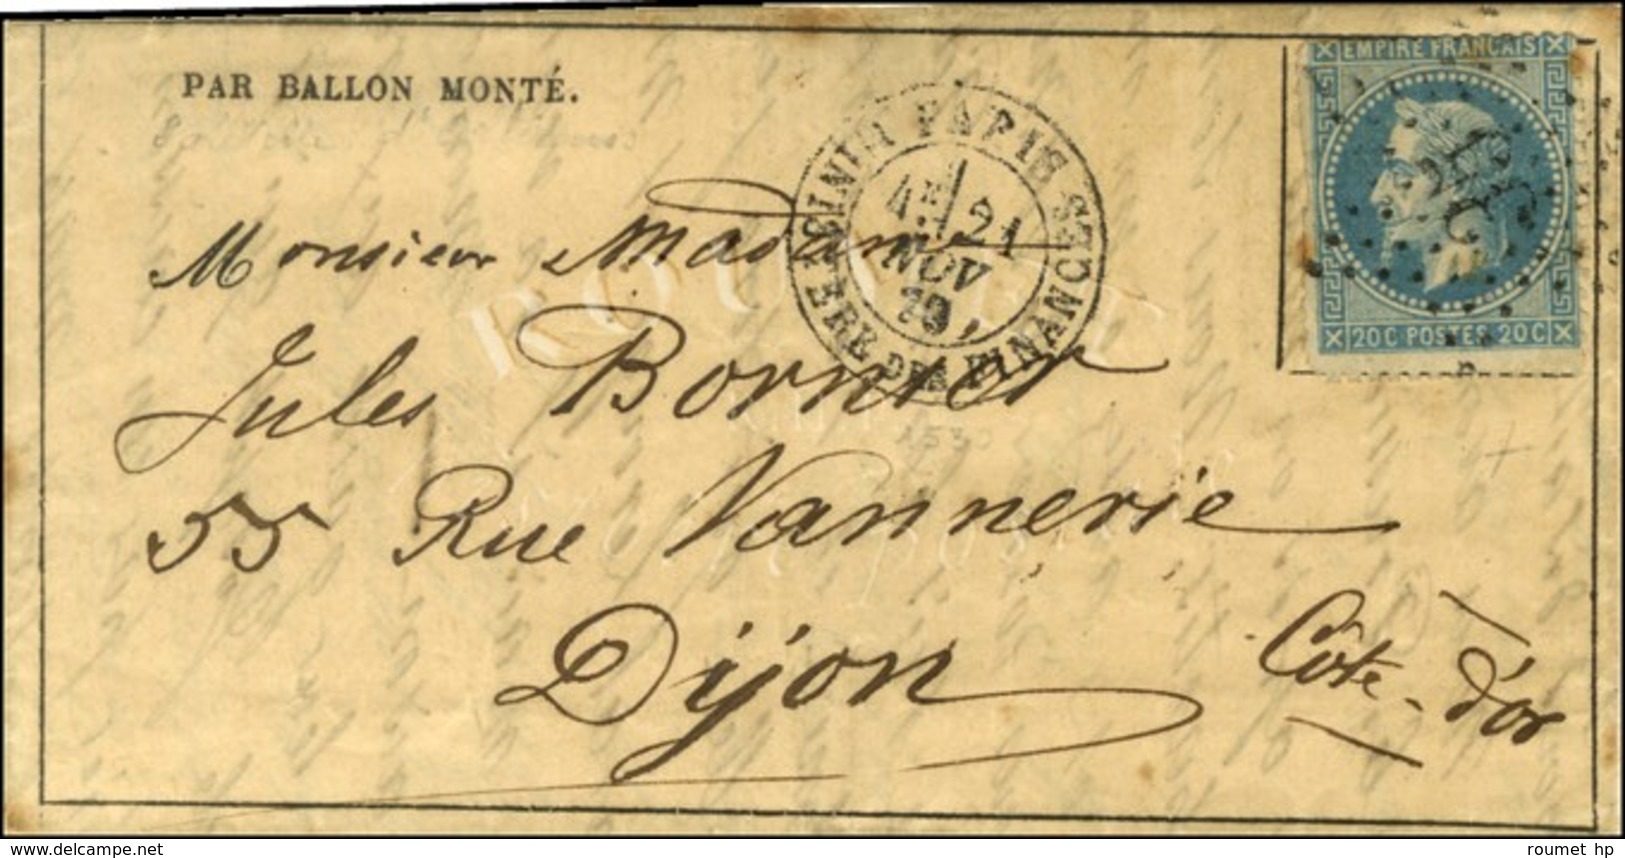 PAR BALLON MONTÉ.
PARIS
MINISTÈRE DES FINANCES
4E 21
NOV
70
EMPIRE FRANÇAIS
20C POSTES 20C
Monsieur Madame
Jules Bornier
55 Rue Vannerie
Dijon
Côte-d'or
ROUMET
1530
www.delcampe.net
roumet hp